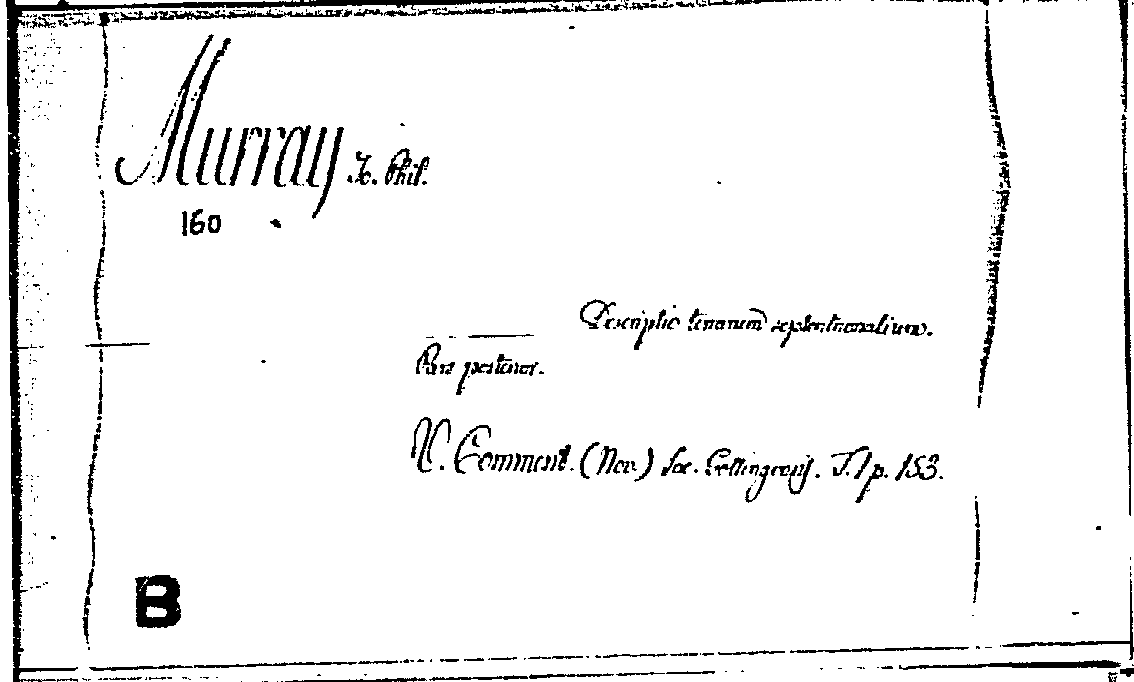 Murray Jo. Phil.
160
Descriptio terrarum septentrionalium.
Pars posterior.
V. Comment. (Nov.) Soc. Gottingens. T. I p. 153.
B